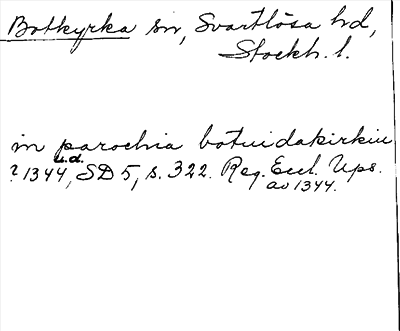 Botkyrka sn, Svartlösa hd,
Stockh. l.
in parochia botuidakirkiu
u.d.
? 1344, SD 5, s. 322. Reg. Eccl. Ups.
av 1344.